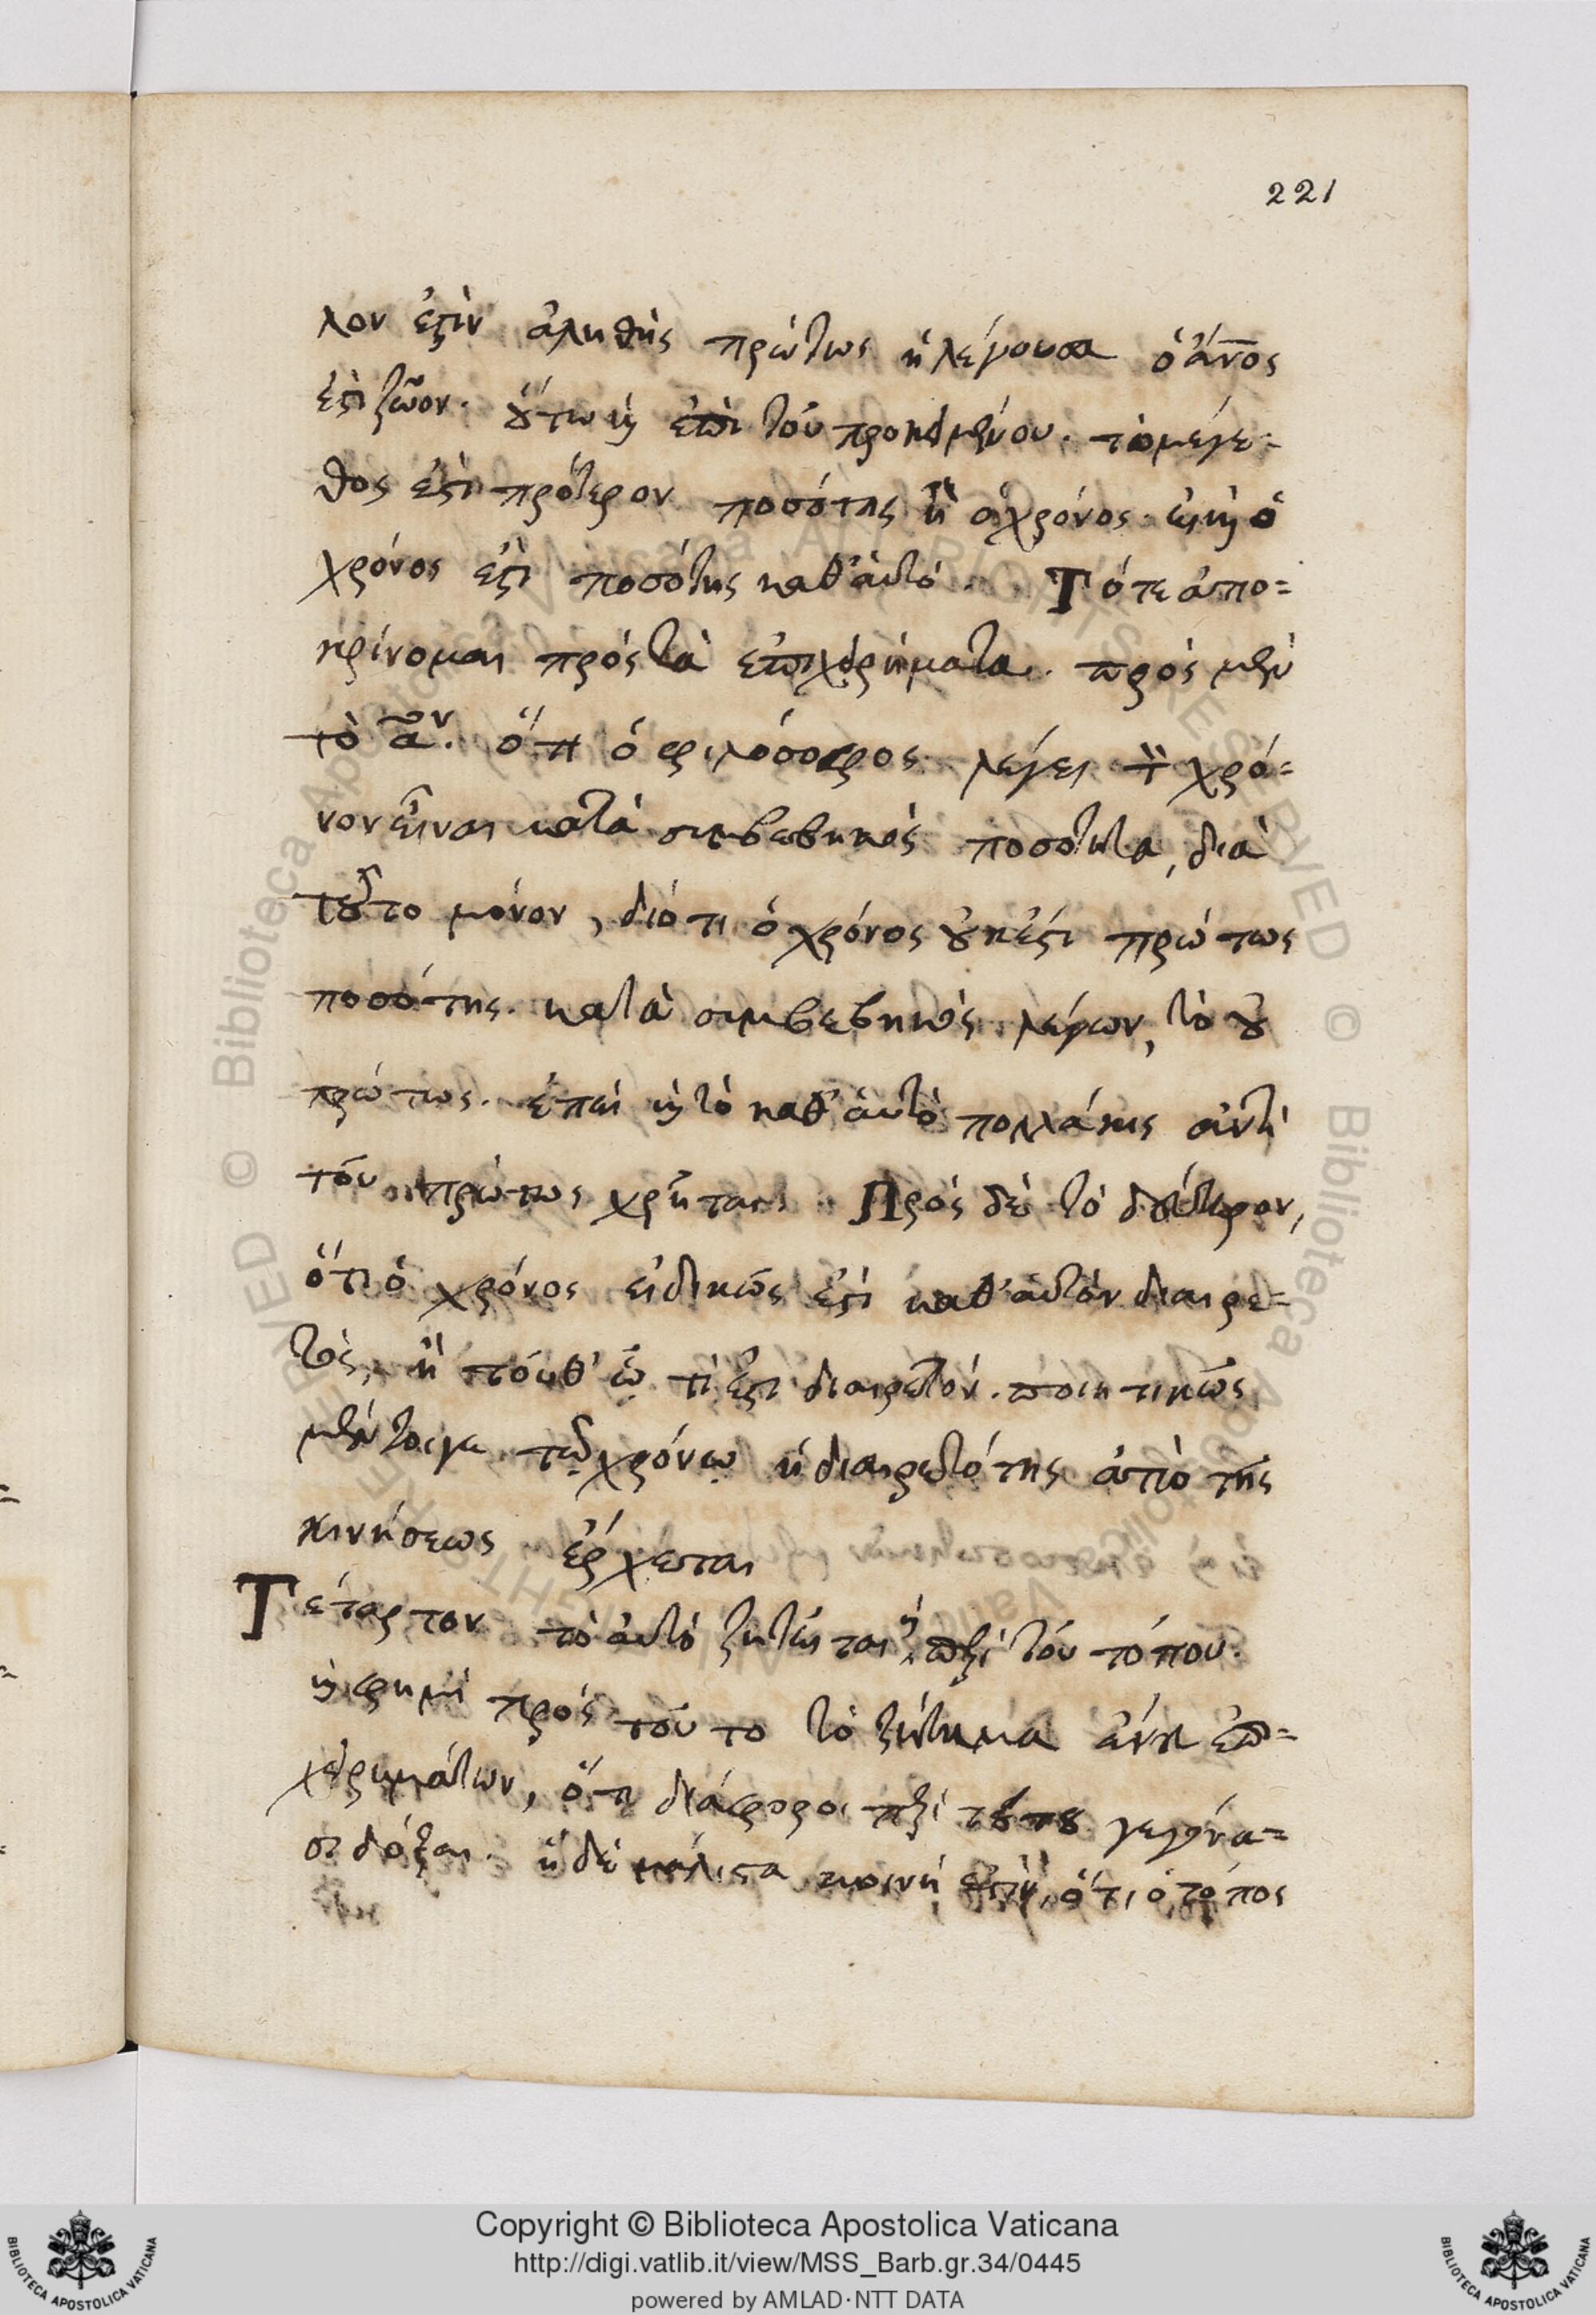 221
λον ἐστὶν ἀληθὴς πρώτως ἡ λέγουσα ὁ ἄνος
ἐστι ζῶον. οὕτω καὶ ἐπὶ τοῦ προκειμένου. τὸ μέγε=
θος ἐστι πρότερον ποσότης ἢ ὁ χρόνος. εἰ καὶ ὁ
χρόνος ἐστι ποσότης καθ' αὑτό. Τότε ἀπο=
κρίνομαι πρὸς τὰ ἐπιχειρήματα. πρὸς μὲν
τὸ αον. ὅτι ὁ φιλόσοφος λέγει τὸν χρό=
νον εἶναι κατὰ συμβεβηκὸς ποσότητα, διὰ
τοῦτο μόνον, διότι ὁ χρόνος οὐκ ἔστι πρώτως
ποσότης. κατὰ συμβεβηκὸς λέγων, τὸ οὐ
πρώτως. ἐπεὶ καὶ τὸ καθ' αὑτὸ πολλάκις ἀντὶ
τοῦ πρώτως χρῆται. Πρὸς δὲ τὸ δεύτερον,
ὅτι ὁ χρόνος εἰδικῶς ἐστὶ καθ' αὑτὸν διαιρε=
τὸς, ἢ τοῦθ' ᾧ τί ἐστι διαιρετόν. ποιητικῶς
μέντοιγε τῷ χρόνῳ ἡ διαιρετότης ἀπὸ τῆς
κινήσεως ἔρχεται
Τέταρτον τὸ αὐτὸ ζητεῖται ἢ περὶ τοῦ τόπου.
καὶ φημὶ πρὸς τοῦτο τὸ ζήτημα ἄνευ ἐπι=
χειρημάτων, ὅτι διάφοροι περὶ τούτου γεγόνα=
σι δόξαι. ἡ δὲ μάλιστα κοινή ἐστιν, ὅτι ὁ τόπος
Copyright © Biblioteca Apostolica Vaticana
http://digi.vatlib.it/view/MSS_Barb.gr.34/0445
powered by AMLAD·NTT DATA